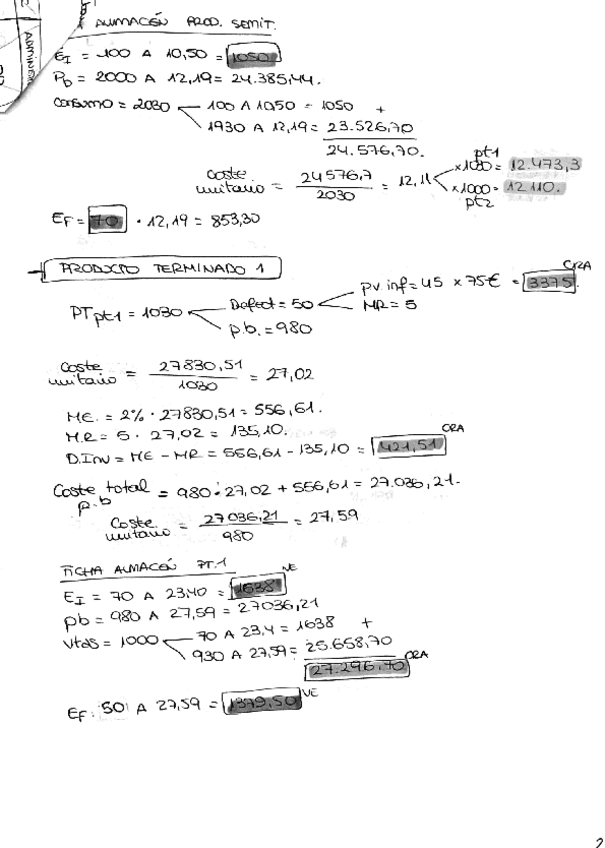 ALMACÉN PROD. SEMIT.
EI = 100 A 10,50 = 1050
Pb = 2000 A 12,19 = 24.385,44.
Consumo = 2030 100 A 1050 = 1050 +
1930 A 12,19 = 23.526,70
24.576,70.
Coste unitario = 24576,7 / 2030 = 12,11
pt1
x1030 = 12.473,3
x1000 = 12.110.
pt2
EF = 70 · 12,19 = 853,30
PRODUCTO TERMINADO 1
PTpt1 = 1030
Defect = 50
p.b. = 980
CRA
pv inf = 45 x 75€ = 3375.
MR = 5
Coste unitario = 27830,51 / 1030 = 27,02
ME. = 2% · 27830,51 = 556,61.
M.R = 5 · 27,02 = 135,10.
D.Inv = ME - MR = 556,61 - 135,10 = 421,51 CRA
Coste total p.b = 980 · 27,02 + 556,61 = 27.036,21.
Coste unitario = 27036,21 / 980 = 27,59
FICHA ALMACÉN PT.1
EI = 70 A 23,40 = 1638 VE
pb = 980 A 27,59 = 27036,21
Vtas = 1000 70 A 23,4 = 1638 +
930 A 27,59 = 25.658,70
27.296,70 CRA
EF: 50 A 27,59 = 1379,50 VE
2